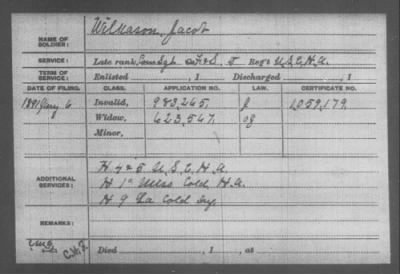 NAME OF SOLDIER: Wilkason, Jacob
SERVICE: Late rank, Com Sgt Co. F&S, 5 Reg't U.S.C.H.A.
TERM OF SERVICE: Enlisted , 1 Discharged , 1
DATE OF FILING. CLASS. APPLICATION NO. LAW. CERTIFICATE NO.
1891 6 Invalid, 983,265. 1,059,179.
Widow, 623,547.
Minor,
ADDITIONAL SERVICES: H 4 & 5 U.S.C.H.A.
H 1" Miss Cold. H.A.
H 9 La Cold Inf.
REMARKS:
Died , 1 , at